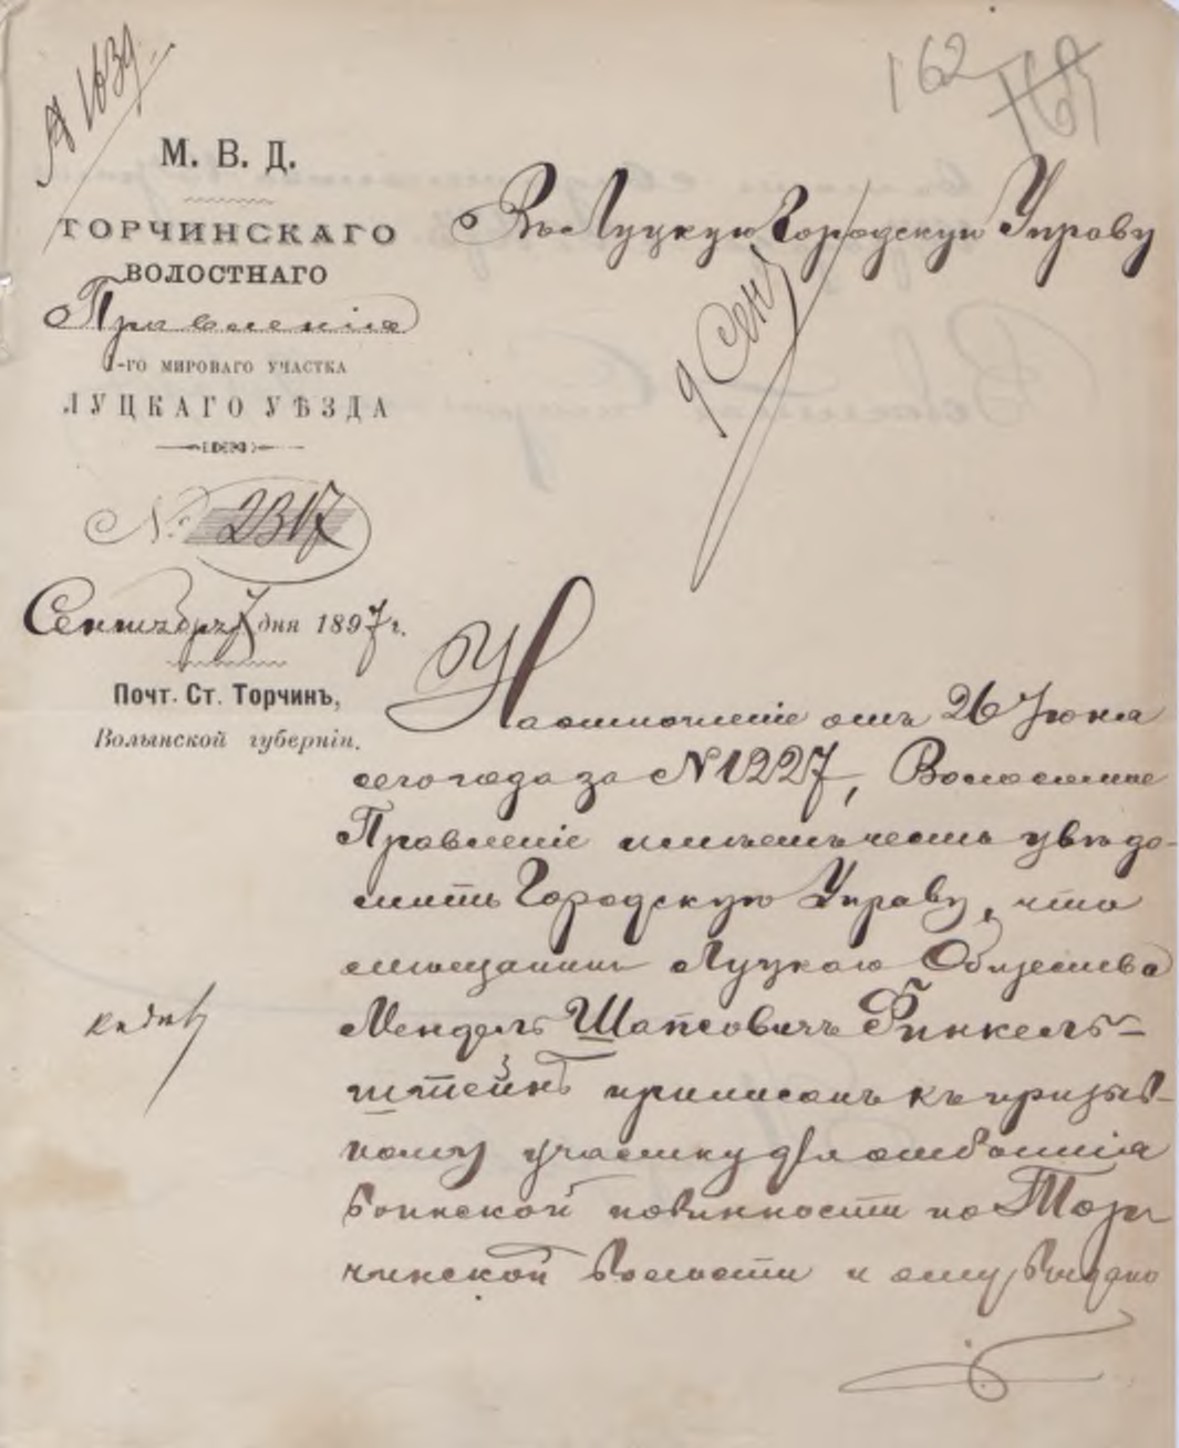 № 1639
162
М. В. Д.
ТОРЧИНСКАГО
ВОЛОСТНАГО
Правленія
-ГО МИРОВАГО УЧАСТКА
ЛУЦКАГО УѢЗДА
№ 2317
Сентября 7 дня 1897 г.
Почт. Ст. Торчинъ,
Волынской губерніи.
Въ Луцкую Городскую Управу
9 Сен
На отношеніе отъ 26 Іюня
сего года за № 1227, Волостное
Правленіе имѣетъ честь увѣдо-
мить Городскую Управу, что
мѣщанинъ Луцкаго Общества
Мендель Шапсовичъ Финкель-
штейнъ приписанъ къ призыв-
ному участку для отбыванія
воинской повинности по Тор-
чинской волости и ему выдано